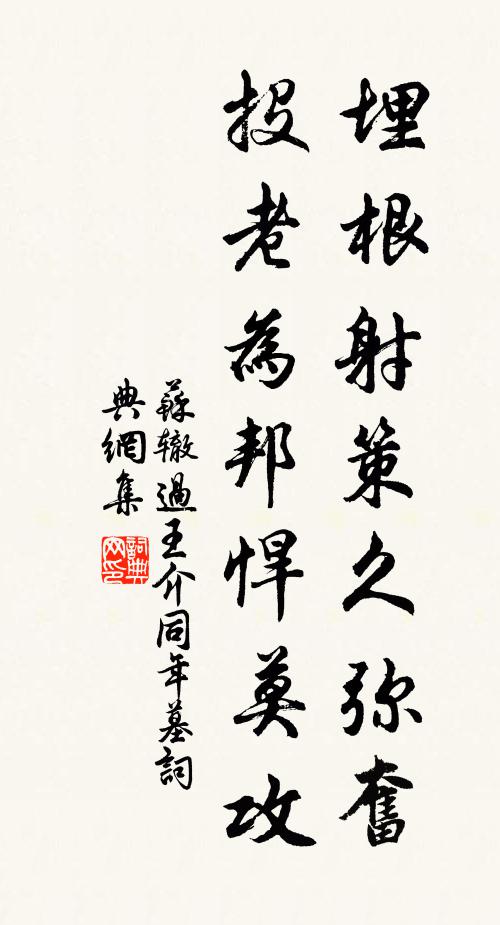 埋根射策久弥奮
投老為邦悍莫攻
蘇辙過王介同年墓詞
典網集
詞典网印